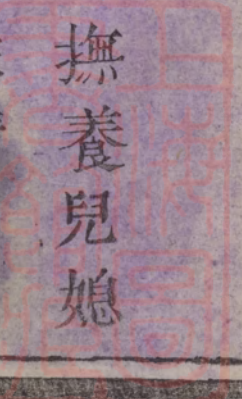 撫養兒媳